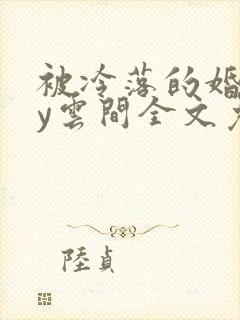 被冷落的婚
y雲間全文
陸貞